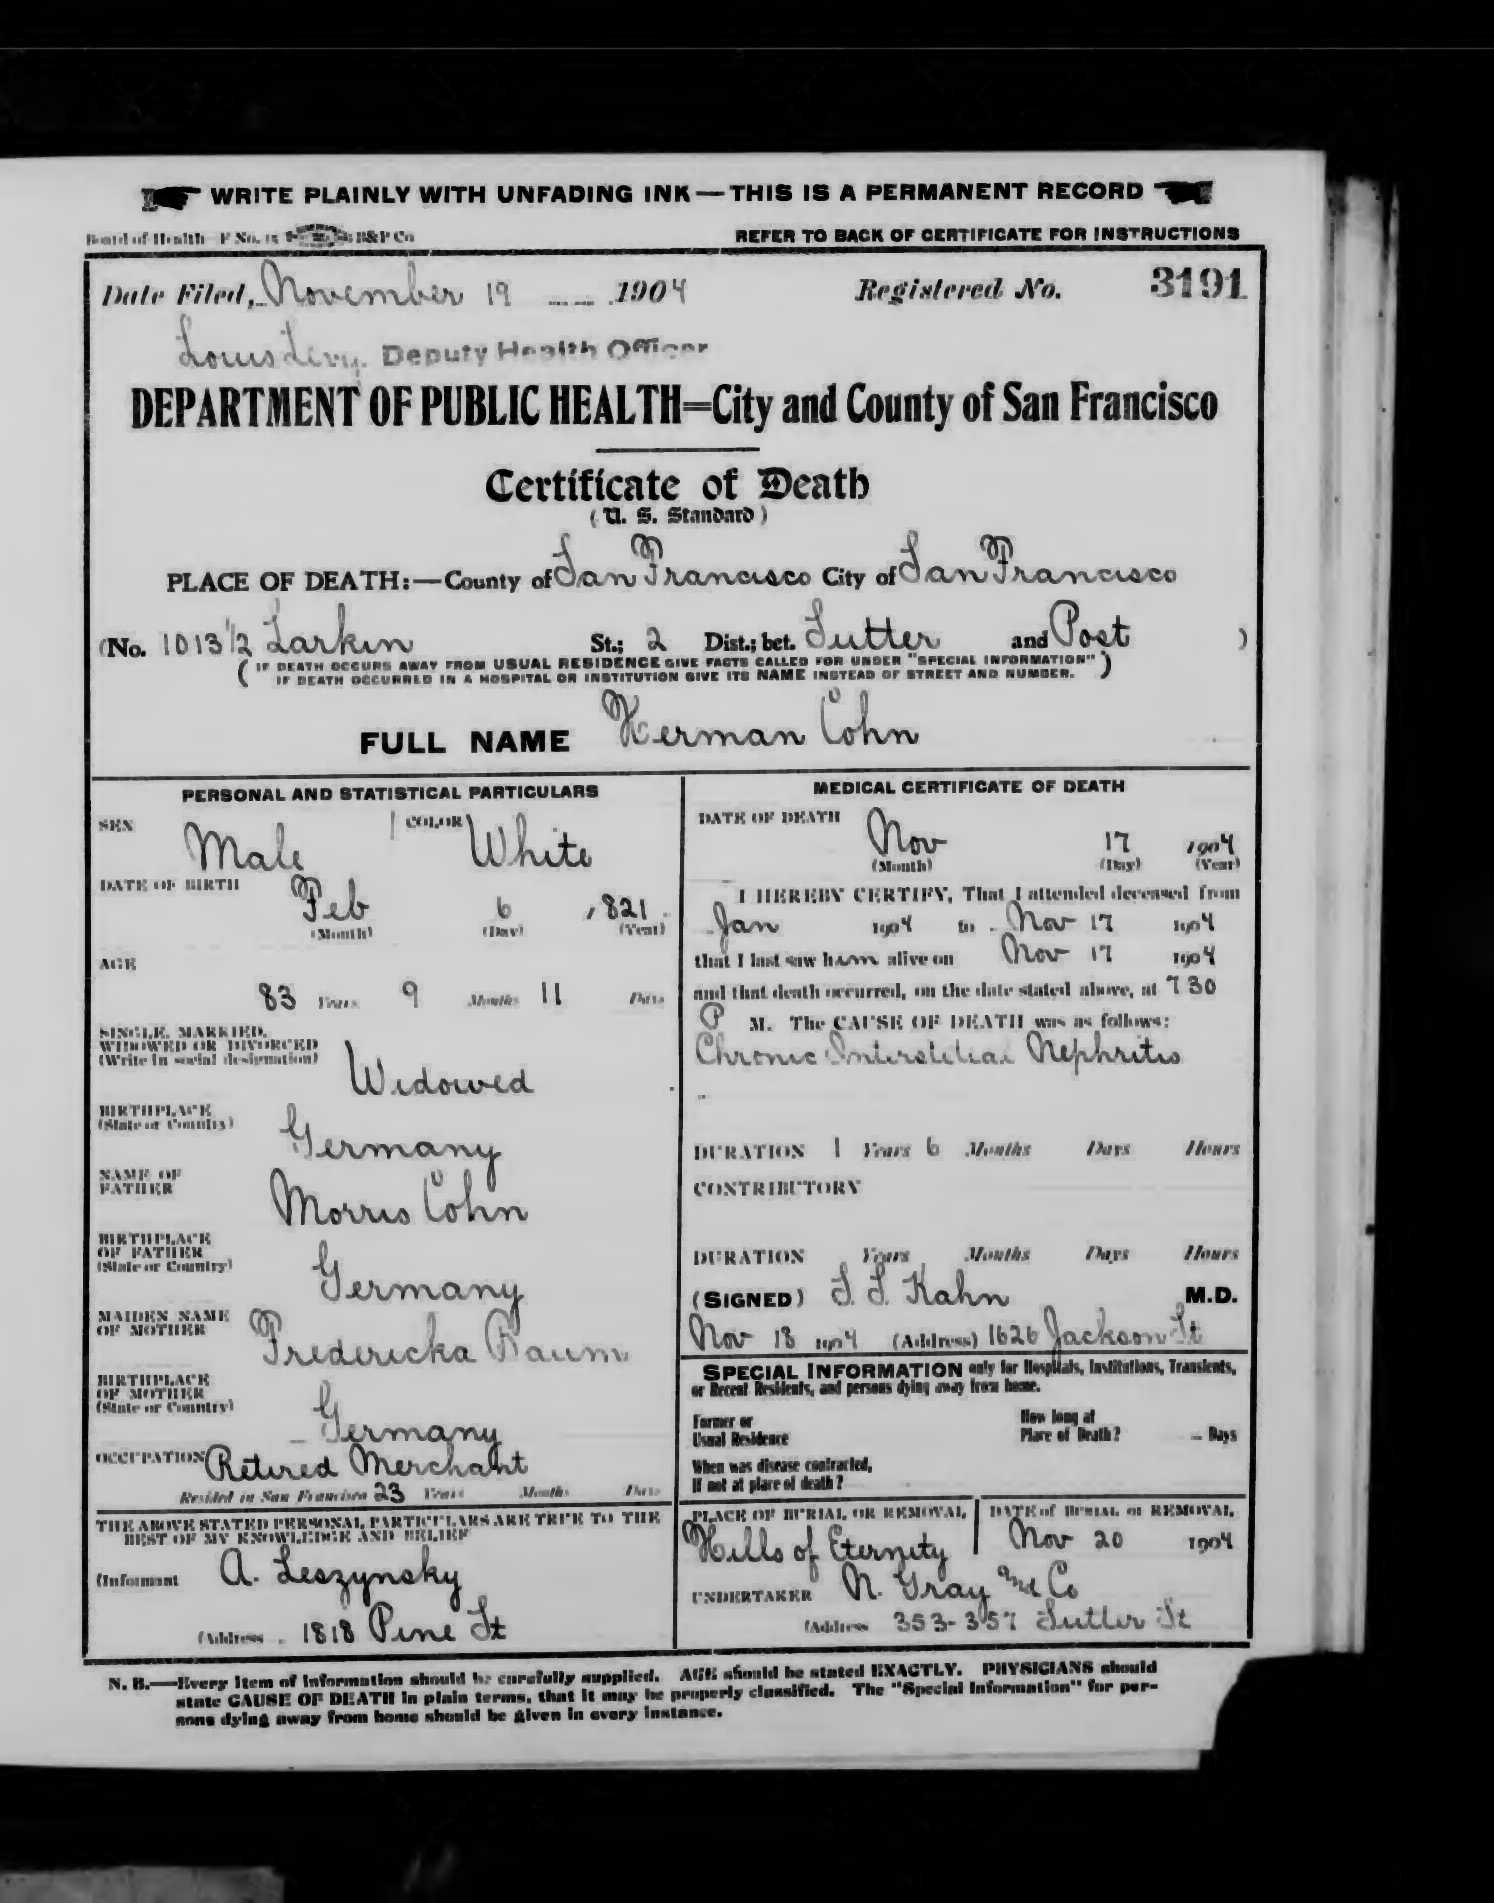 WRITE PLAINLY WITH UNFADING INK — THIS IS A PERMANENT RECORD
Board of Health—F No. 15 B&P Co
REFER TO BACK OF CERTIFICATE FOR INSTRUCTIONS
Date Filed, November 19 1904 Registered No. 3191
Louis Levy, Deputy Health Officer
DEPARTMENT OF PUBLIC HEALTH=City and County of San Francisco
Certificate of Death
(U. S. Standard)
PLACE OF DEATH:—County of San Francisco City of San Francisco
(No. 1013 1/2 Larkin St.; 2 Dist.; bet. Sutter and Post )
( IF DEATH OCCURS AWAY FROM USUAL RESIDENCE GIVE FACTS CALLED FOR UNDER "SPECIAL INFORMATION" )
IF DEATH OCCURRED IN A HOSPITAL OR INSTITUTION GIVE ITS NAME INSTEAD OF STREET AND NUMBER.
FULL NAME Herman Cohn
PERSONAL AND STATISTICAL PARTICULARS
SEX Male COLOR White
DATE OF BIRTH Feb 6 1821
(Month) (Day) (Year)
AGE
83 Years 9 Months 11 Days
SINGLE, MARRIED,
WIDOWED OR DIVORCED
(Write in social designation)
Widowed
BIRTHPLACE
(State or Country)
Germany
NAME OF
FATHER
Morris Cohn
BIRTHPLACE
OF FATHER
(State or Country)
Germany
MAIDEN NAME
OF MOTHER
Fredericka Baum
BIRTHPLACE
OF MOTHER
(State or Country)
Germany
OCCUPATION Retired Merchant
Resided in San Francisco 23 Years Months Days
THE ABOVE STATED PERSONAL PARTICULARS ARE TRUE TO THE
BEST OF MY KNOWLEDGE AND BELIEF
(Informant A. Leszynsky
(Address 1818 Pine St
MEDICAL CERTIFICATE OF DEATH
DATE OF DEATH
Nov 17 1904
(Month) (Day) (Year)
I HEREBY CERTIFY, That I attended deceased from
Jan 1904 to Nov 17 1904
that I last saw him alive on Nov 17 1904
and that death occurred, on the date stated above, at 7 30
P M. The CAUSE OF DEATH was as follows:
Chronic Interstitial Nephritis
DURATION 1 Years 6 Months Days Hours
CONTRIBUTORY
DURATION Years Months Days Hours
(SIGNED) S. S. Kahn M.D.
Nov 18 1904 (Address) 1626 Jackson St
SPECIAL INFORMATION only for Hospitals, Institutions, Transients,
or Recent Residents, and persons dying away from home.
Former or
Usual Residence
How long at
Place of Death? Days
When was disease contracted,
If not at place of death?
PLACE OF BURIAL OR REMOVAL
Hills of Eternity
DATE of BURIAL or REMOVAL
Nov 20 1904
UNDERTAKER N. Gray and Co
(Address 353-357 Sutter St
N. B.—Every item of information should be carefully supplied. AGE should be stated EXACTLY. PHYSICIANS should
state CAUSE OF DEATH in plain terms, that it may be properly classified. The "Special Information" for per-
sons dying away from home should be given in every instance.